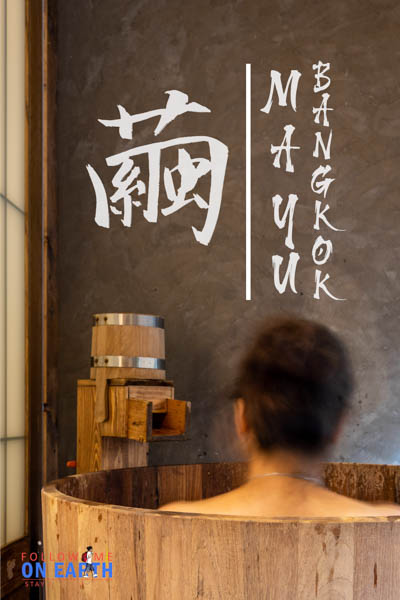 繭
MAYU
BANGKOK
FOLLOW ME
ON EARTH
STAY